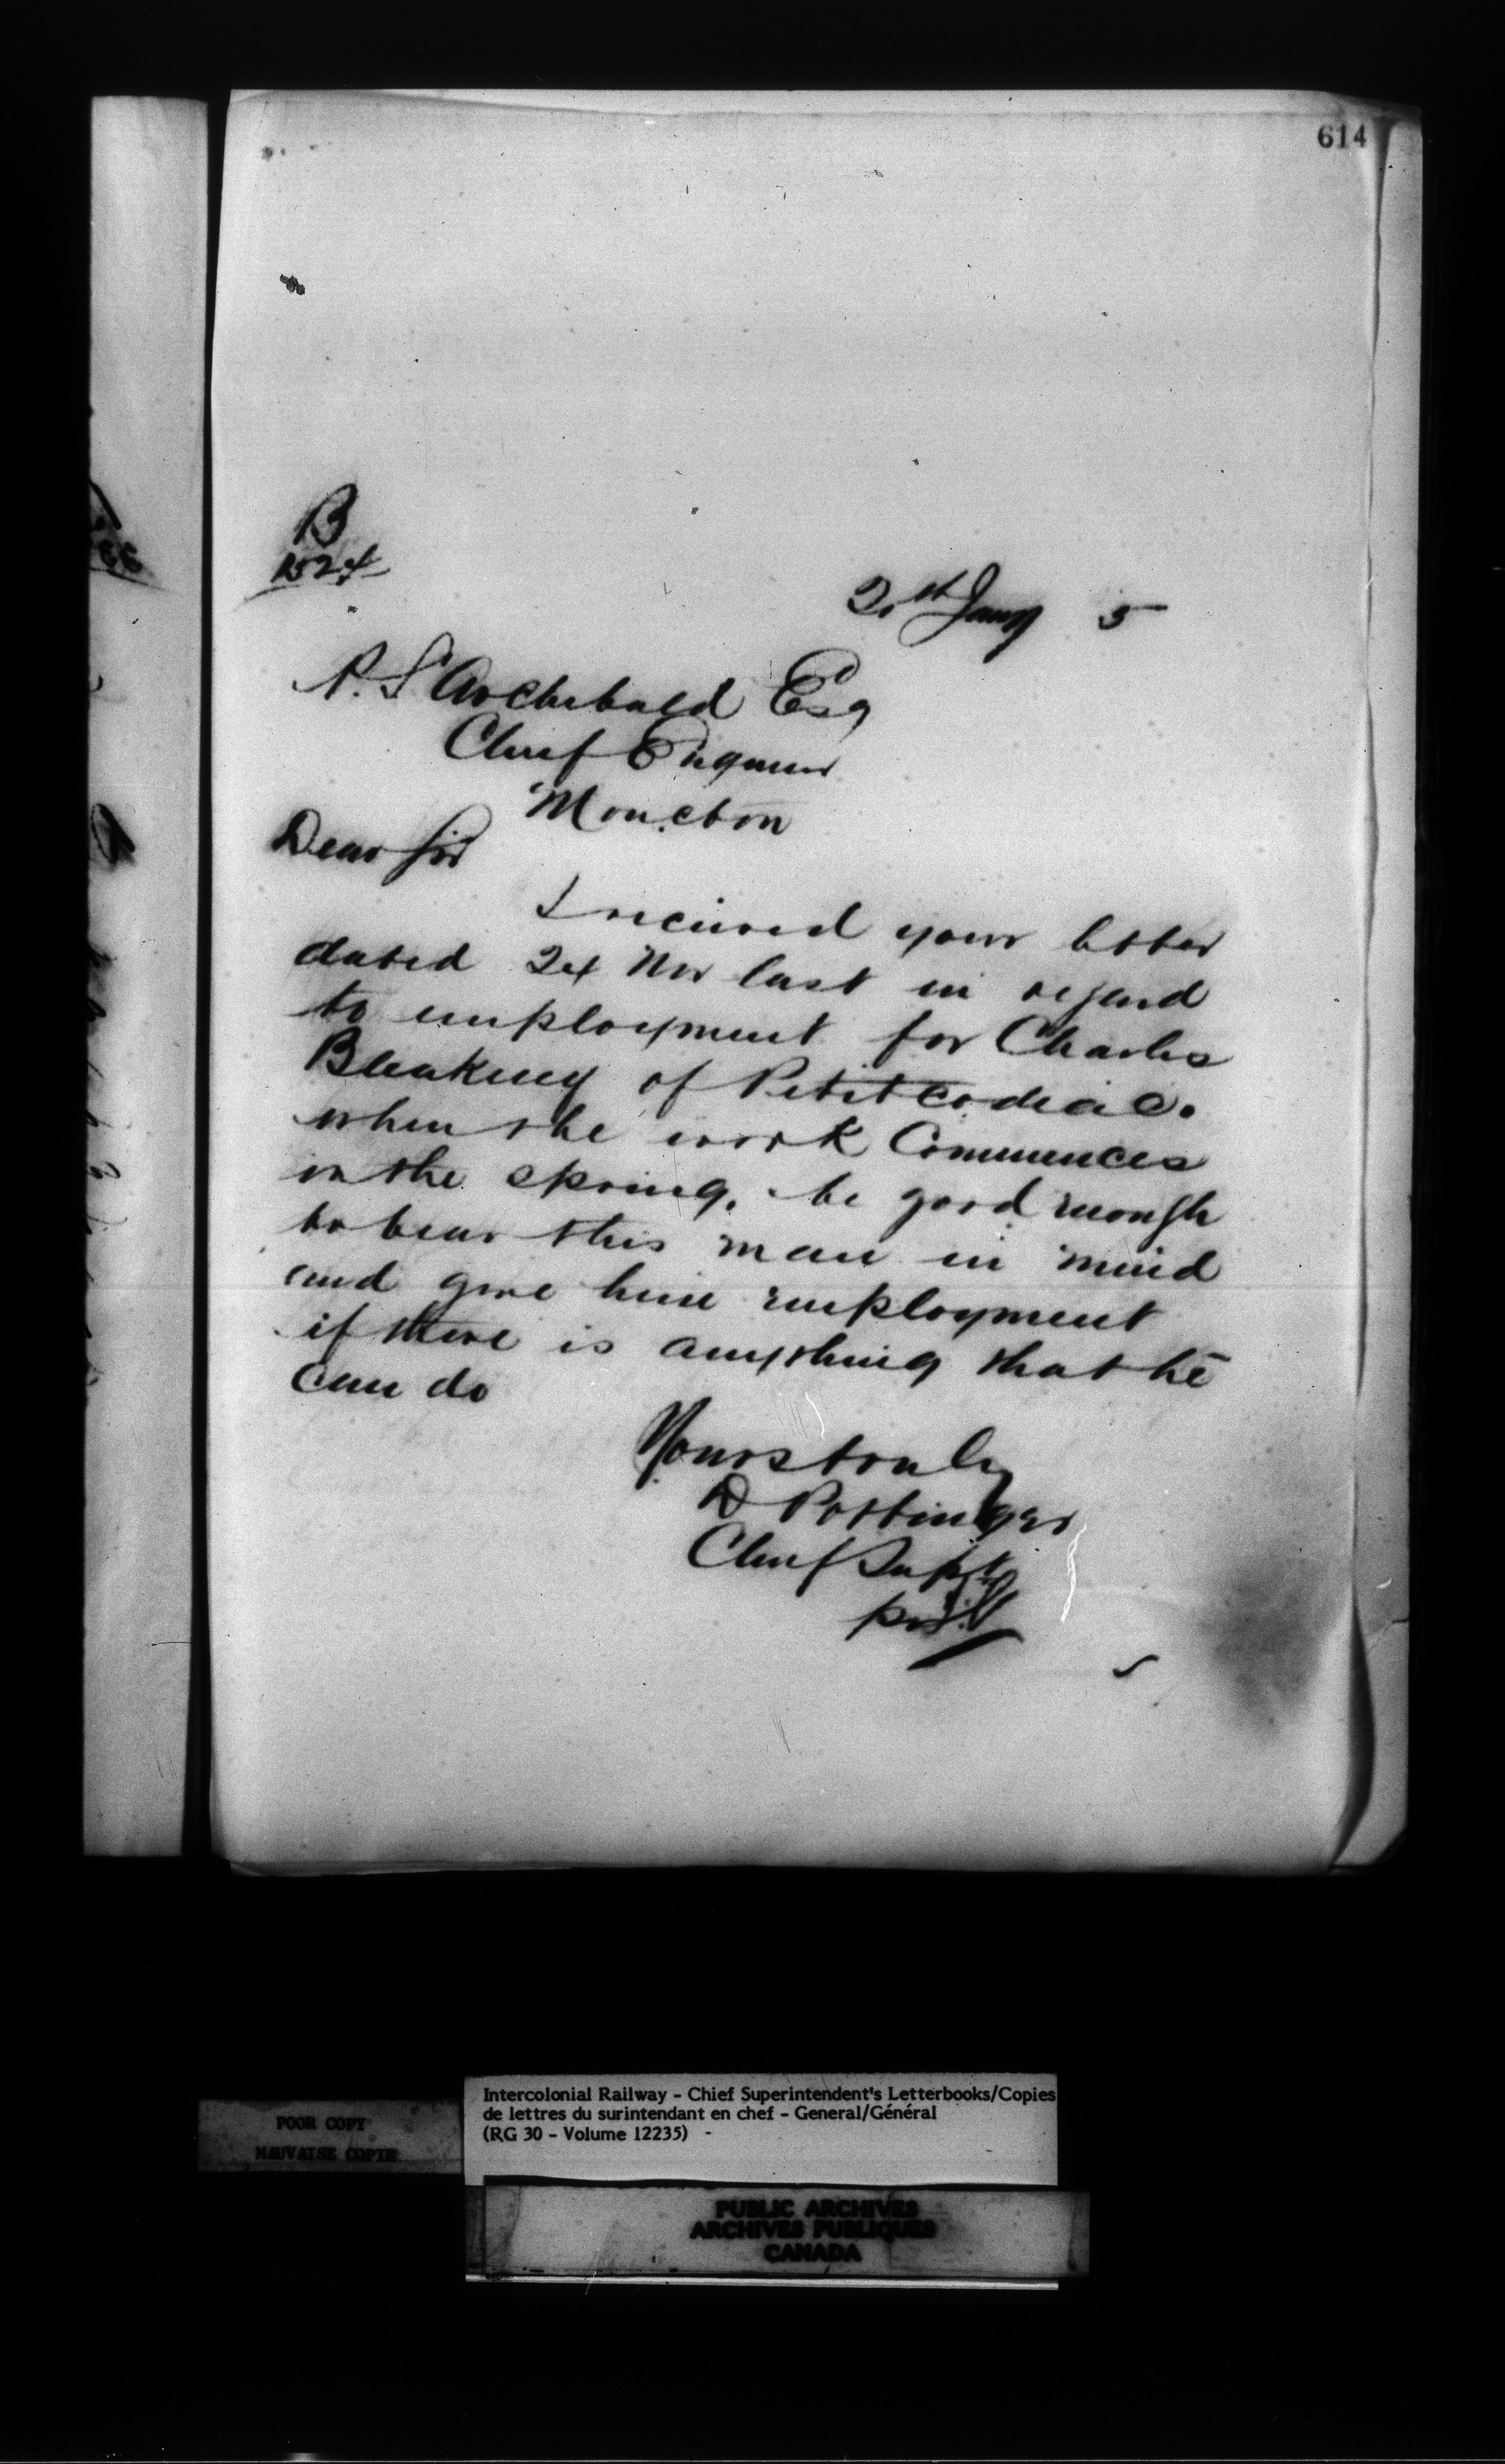 614
B
1524
21st Jany 5
P. S Archibald Esq
Chief Engineer
Moncton
Dear Sir
I received your letter
dated 24 Nov last in regard
to employment for Charles
Bleakney of Petitcodiac.
when the work Commences
in the spring. be good enough
to bear this man in mind
and give him employment
if there is anything that he
can do
Yours truly
D Pottinger
Chief Supt
Intercolonial Railway - Chief Superintendent's Letterbooks/Copies
de lettres du surintendant en chef - General/Général
(RG 30 - Volume 12235) -
POOR COPY
MAUVAISE COPIE
PUBLIC ARCHIVES
ARCHIVES PUBLIQUES
CANADA